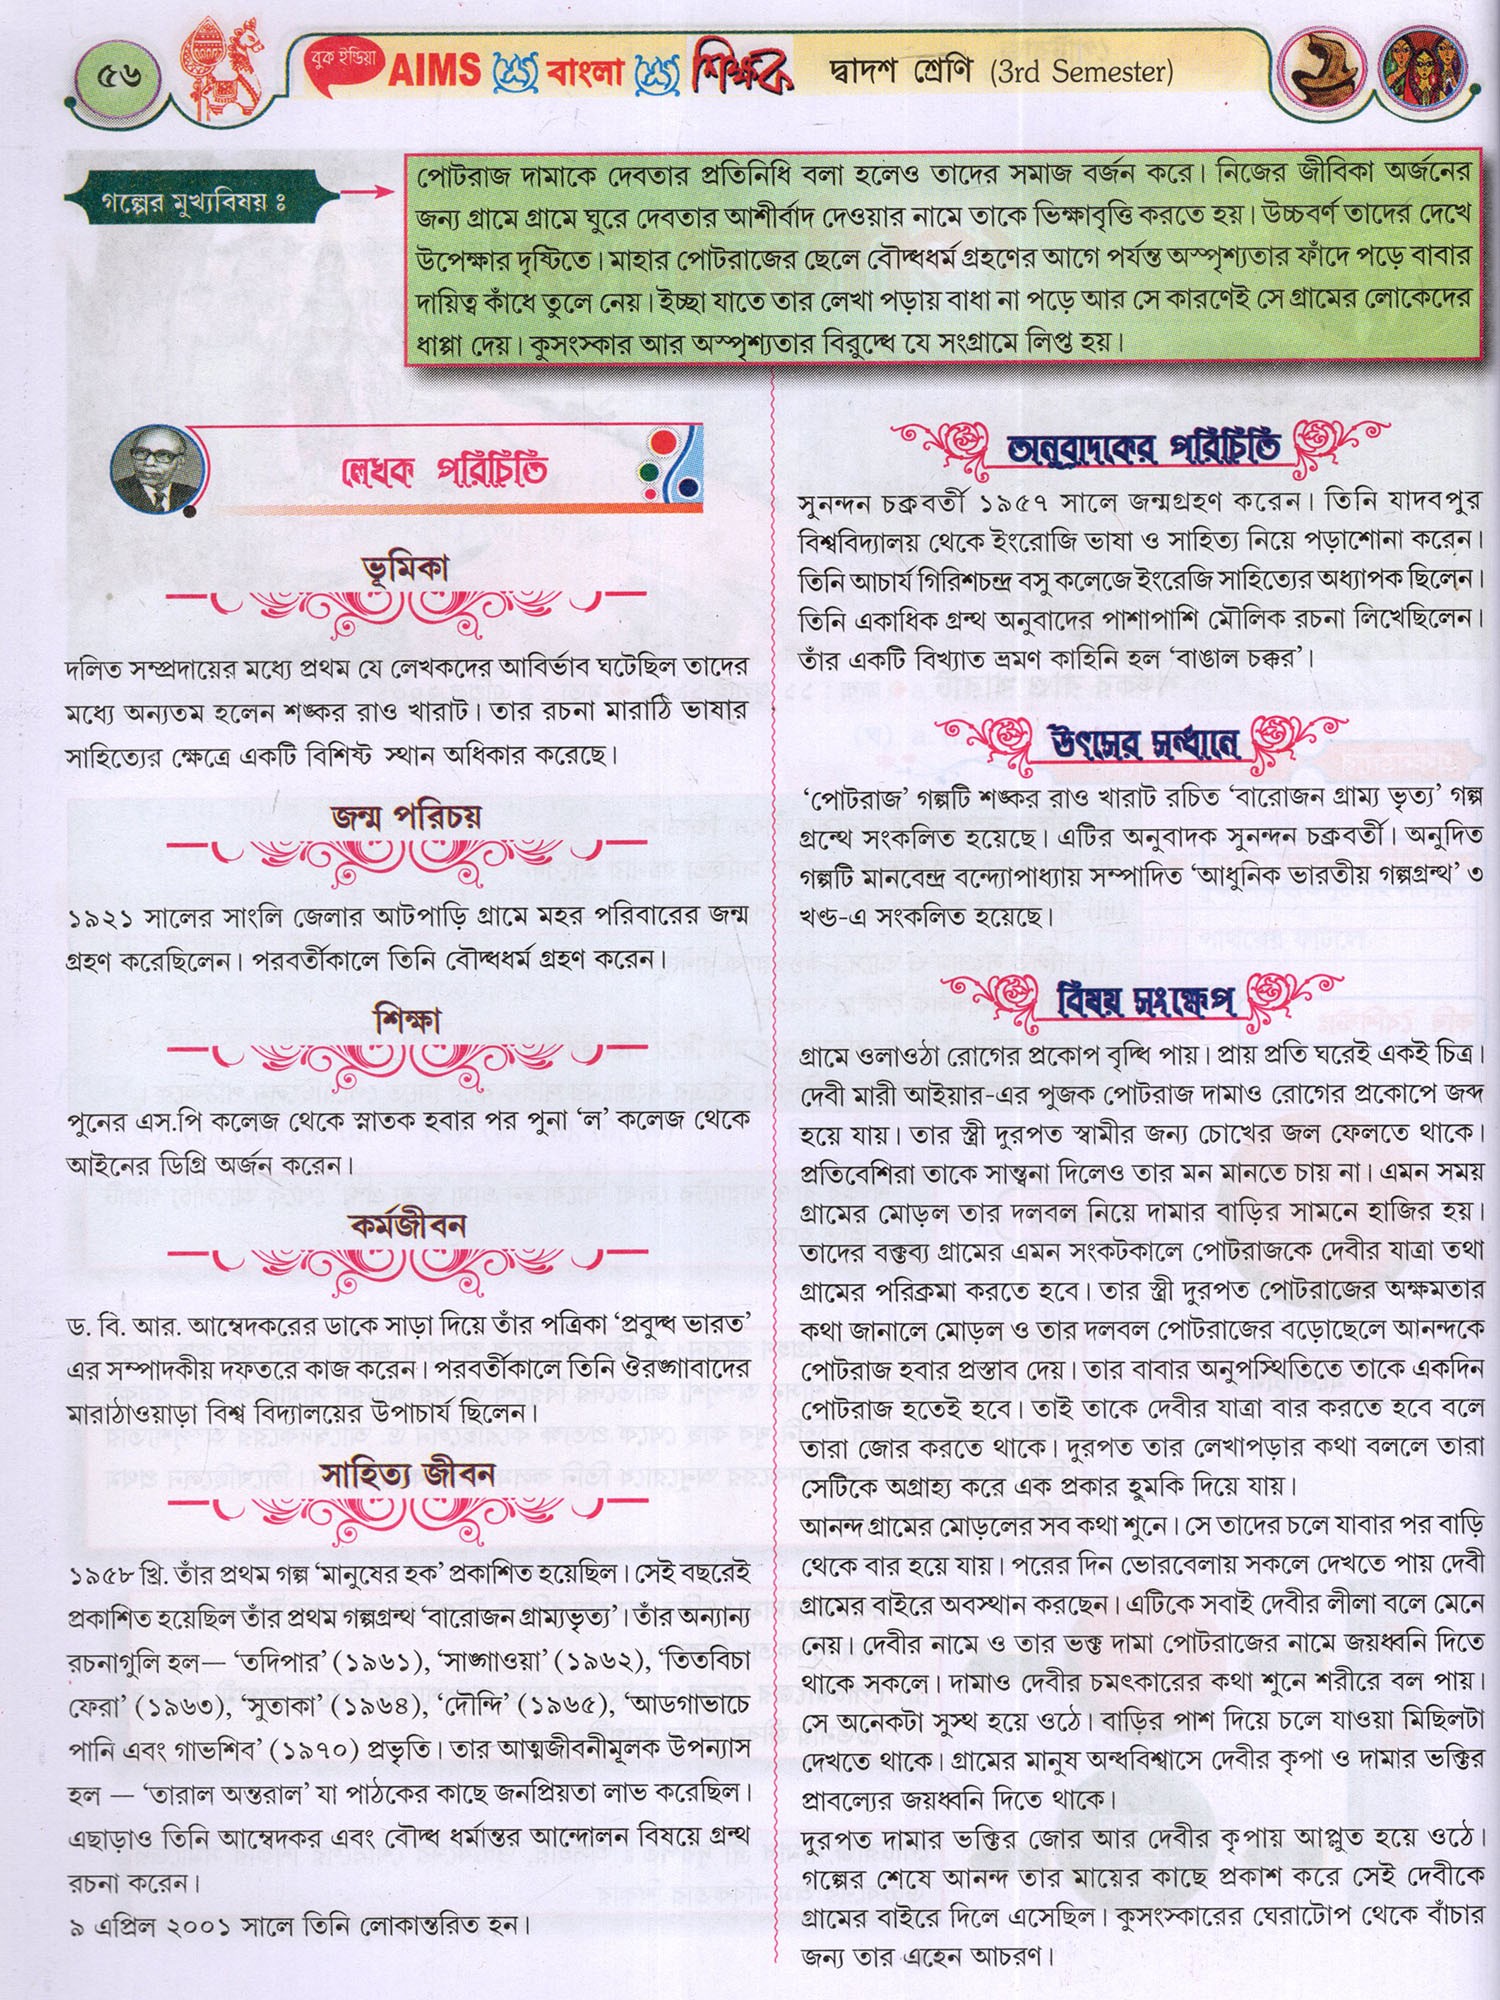 ৫৬
বুক ইন্ডিয়া AIMS বাংলা শিক্ষক দ্বাদশ শ্রেণি (3rd Semester)
গল্পের মুখ্যবিষয় ঃ
পোটরাজ দামাকে দেবতার প্রতিনিধি বলা হলেও তাদের সমাজ বর্জন করে। নিজের জীবিকা অর্জনের
জন্য গ্রামে গ্রামে ঘুরে দেবতার আশীর্বাদ দেওয়ার নামে তাকে ভিক্ষাবৃত্তি করতে হয়। উচ্চবর্ণ তাদের দেখে
উপেক্ষার দৃষ্টিতে। মাহার পোটরাজের ছেলে বৌদ্ধধর্ম গ্রহণের আগে পর্যন্ত অস্পৃশ্যতার ফাঁদে পড়ে বাবার
দায়িত্ব কাঁধে তুলে নেয়। ইচ্ছা যাতে তার লেখা পড়ায় বাধা না পড়ে আর সে কারণেই সে গ্রামের লোকেদের
ধাপ্পা দেয়। কুসংস্কার আর অস্পৃশ্যতার বিরুদ্ধে যে সংগ্রামে লিপ্ত হয়।
লেখক পরিচিতি
ভূমিকা
দলিত সম্প্রদায়ের মধ্যে প্রথম যে লেখকদের আবির্ভাব ঘটেছিল তাদের
মধ্যে অন্যতম হলেন শঙ্কর রাও খারাট। তার রচনা মারাঠি ভাষার
সাহিত্যের ক্ষেত্রে একটি বিশিষ্ট স্থান অধিকার করেছে।
জন্ম পরিচয়
১৯২১ সালের সাংলি জেলার আটপাড়ি গ্রামে মহর পরিবারের জন্ম
গ্রহণ করেছিলেন। পরবর্তীকালে তিনি বৌদ্ধধর্ম গ্রহণ করেন।
শিক্ষা
পুনের এস.পি কলেজ থেকে স্নাতক হবার পর পুনা ‘ল’ কলেজ থেকে
আইনের ডিগ্রি অর্জন করেন।
কর্মজীবন
ড. বি. আর. আম্বেদকরের ডাকে সাড়া দিয়ে তাঁর পত্রিকা ‘প্রবুদ্ধ ভারত’
এর সম্পাদকীয় দফতরে কাজ করেন। পরবর্তীকালে তিনি ঔরঙ্গাবাদের
মারাঠাওয়াড়া বিশ্ব বিদ্যালয়ের উপাচার্য ছিলেন।
সাহিত্য জীবন
১৯৫৮ খ্রি. তাঁর প্রথম গল্প ‘মানুষের হক’ প্রকাশিত হয়েছিল। সেই বছরেই
প্রকাশিত হয়েছিল তাঁর প্রথম গল্পগ্রন্থ ‘বারোজন গ্রাম্যভৃত্য’। তাঁর অন্যান্য
রচনাগুলি হল— ‘তদিপার’ (১৯৬১), ‘সাঙ্গাওয়া’ (১৯৬২), ‘তিতবিচা
ফেরা’ (১৯৬৩), ‘সুতাকা’ (১৯৬৪), ‘দৌন্দি’ (১৯৬৫), ‘আডগাভাচে
পানি এবং গাভশিব’ (১৯৭০) প্রভৃতি। তার আত্মজীবনীমূলক উপন্যাস
হল — ‘তারাল অন্তরাল’ যা পাঠকের কাছে জনপ্রিয়তা লাভ করেছিল।
এছাড়াও তিনি আম্বেদকর এবং বৌদ্ধ ধর্মান্তর আন্দোলন বিষয়ে গ্রন্থ
রচনা করেন।
৯ এপ্রিল ২০০১ সালে তিনি লোকান্তরিত হন।
অনুবাদকের পরিচিতি
সুনন্দন চক্রবর্তী ১৯৫৭ সালে জন্মগ্রহণ করেন। তিনি যাদবপুর
বিশ্ববিদ্যালয় থেকে ইংরোজি ভাষা ও সাহিত্য নিয়ে পড়াশোনা করেন।
তিনি আচার্য গিরিশচন্দ্র বসু কলেজে ইংরেজি সাহিত্যের অধ্যাপক ছিলেন।
তিনি একাধিক গ্রন্থ অনুবাদের পাশাপাশি মৌলিক রচনা লিখেছিলেন।
তাঁর একটি বিখ্যাত ভ্রমণ কাহিনি হল ‘বাঙাল চক্কর’।
উৎসের সন্ধানে
‘পোটরাজ’ গল্পটি শঙ্কর রাও খারাট রচিত ‘বারোজন গ্রাম্য ভৃত্য’ গল্প
গ্রন্থে সংকলিত হয়েছে। এটির অনুবাদক সুনন্দন চক্রবর্তী। অনুদিত
গল্পটি মানবেন্দ্র বন্দ্যোপাধ্যায় সম্পাদিত ‘আধুনিক ভারতীয় গল্পগ্রন্থ’ ৩
খণ্ড-এ সংকলিত হয়েছে।
বিষয় সংক্ষেপ
গ্রামে ওলাওঠা রোগের প্রকোপ বৃদ্ধি পায়। প্রায় প্রতি ঘরেই একই চিত্র।
দেবী মারী আইয়ার-এর পুজক পোটরাজ দামাও রোগের প্রকোপে জব্দ
হয়ে যায়। তার স্ত্রী দুরপত স্বামীর জন্য চোখের জল ফেলতে থাকে।
প্রতিবেশিরা তাকে সান্ত্বনা দিলেও তার মন মানতে চায় না। এমন সময়
গ্রামের মোড়ল তার দলবল নিয়ে দামার বাড়ির সামনে হাজির হয়।
তাদের বক্তব্য গ্রামের এমন সংকটকালে পোটরাজকে দেবীর যাত্রা তথা
গ্রামের পরিক্রমা করতে হবে। তার স্ত্রী দুরপত পোটরাজের অক্ষমতার
কথা জানালে মোড়ল ও তার দলবল পোটরাজের বড়োছেলে আনন্দকে
পোটরাজ হবার প্রস্তাব দেয়। তার বাবার অনুপস্থিতিতে তাকে একদিন
পোটরাজ হতেই হবে। তাই তাকে দেবীর যাত্রা বার করতে হবে বলে
তারা জোর করতে থাকে। দুরপত তার লেখাপড়ার কথা বললে তারা
সেটিকে অগ্রাহ্য করে এক প্রকার হুমকি দিয়ে যায়।
আনন্দ গ্রামের মোড়লের সব কথা শুনে। সে তাদের চলে যাবার পর বাড়ি
থেকে বার হয়ে যায়। পরের দিন ভোরবেলায় সকলে দেখতে পায় দেবী
গ্রামের বাইরে অবস্থান করছেন। এটিকে সবাই দেবীর লীলা বলে মেনে
নেয়। দেবীর নামে ও তার ভক্ত দামা পোটরাজের নামে জয়ধ্বনি দিতে
থাকে সকলে। দামাও দেবীর চমৎকারের কথা শুনে শরীরে বল পায়।
সে অনেকটা সুস্থ হয়ে ওঠে। বাড়ির পাশ দিয়ে চলে যাওয়া মিছিলটা
দেখতে থাকে। গ্রামের মানুষ অন্ধবিশ্বাসে দেবীর কৃপা ও দামার ভক্তির
প্রাবল্যের জয়ধ্বনি দিতে থাকে।
দুরপত দামার ভক্তির জোর আর দেবীর কৃপায় আপ্লুত হয়ে ওঠে।
গল্পের শেষে আনন্দ তার মায়ের কাছে প্রকাশ করে সেই দেবীকে
গ্রামের বাইরে দিলে এসেছিল। কুসংস্কারের ঘেরাটোপ থেকে বাঁচার
জন্য তার এহেন আচরণ।